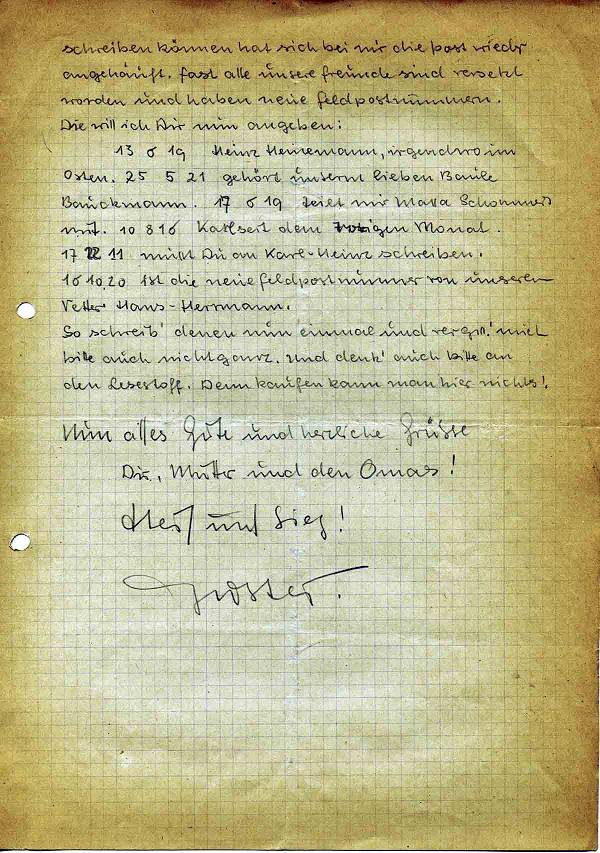 schreiben können hat sich bei mir die post wieder
angehäuft. fast alle unsere freunde sind versetzt
worden und haben neue feldpostnummern.
Die will ich Dir nun angeben:
13 6 19 Heinz Heinemann, irgendwo im
Osten. 25 5 21 gehört unserm lieben Baule
Bauckmann. 17 6 19 teilt mir
mit. 10 816 Karl seit dem vorigen Monat.
17 22 11 mußt Du an Karl-Heinz schreiben.
16 10 20 ist die neue feldpostnummer von unserem
Vetter Hans-Herrmann.
So schreib' denen nun einmal und vergiß' mich
bitte auch nicht ganz. Und denk' auch bitte an
den Lesestoff. Denn kaufen kann man hier nichts!
Nun alles Gute und herzliche Grüße
Dir, Mutter und den Omas!
und Sieg!